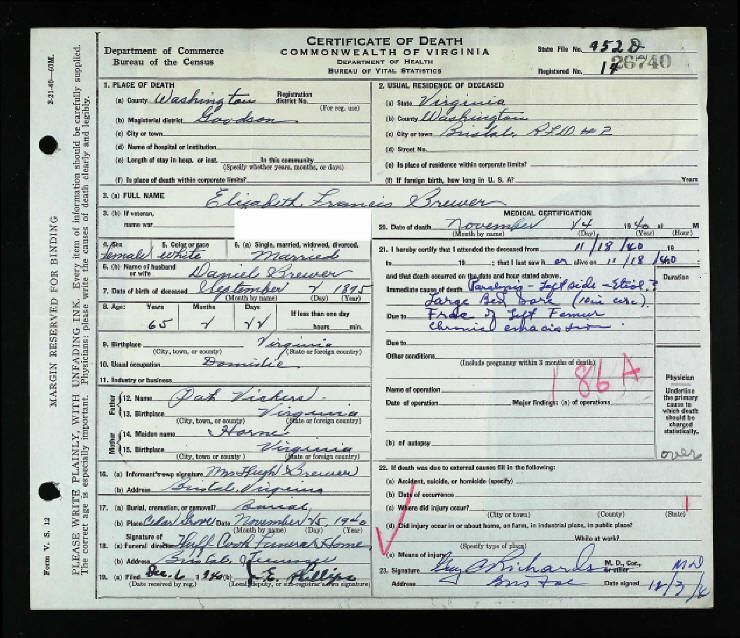 CERTIFICATE OF DEATH
COMMONWEALTH OF VIRGINIA
DEPARTMENT OF HEALTH
BUREAU OF VITAL STATISTICS
Department of Commerce
Bureau of the Census
State File No. 952D
Registered No. 14
26740
2-21-40—60M.
MARGIN RESERVED FOR BINDING
PLEASE WRITE PLAINLY, WITH UNFADING INK. Every item of information should be carefully supplied.
The correct age is especially important. Physicians: please write the causes of death clearly and legibly.
Form V. S. 12
1. PLACE OF DEATH
(a) County Washington Registration District No. (For reg. use)
(b) Magisterial district Goodson
(c) City or town
(d) Name of hospital or institution
(e) Length of stay in hosp. or inst. In this community
(Specify whether years, months, or days)
(f) Is place of death within corporate limits?
2. USUAL RESIDENCE OF DECEASED
(a) State Virginia
(b) County Washington
(c) City or town Bristol, R.F.D #2
(d) Street No.
(e) Is place of residence within corporate limits?
(f) If foreign birth, how long in U. S. A? Years
3. (a) FULL NAME Elizabeth Francis Brewer
3. (b) If veteran, name war
4. Sex female
5. Color or race white
6. (a) Single, married, widowed, divorced. Married
6. (b) Name of husband or wife Daniel Brewer
7. Date of birth of deceased September 2 1875
(Month by name) (Day) (Year)
8. Age: Years 65 Months 2 Days 22 If less than one day hours min.
9. Birthplace Virginia
(City, town, or county) (State or foreign country)
10. Usual occupation Domistic
11. Industry or business
Father
12. Name Pat Vickers
13. Birthplace Virginia
(City, town, or county) (State or foreign country)
Mother
14. Maiden name Horne
15. Birthplace Virginia
(City, town, or county) (State or foreign country)
16. (a) Informant's own signature Mrs Hugh Brewer
(b) Address Bristol, Virginia
17. (a) Burial, cremation, or removal? Burial
(b) Place Cedar Grove Date November 25, 1940
(Month by name) (Day) (Year)
Signature of
18. (a) Funeral director Huff Cook Funeral Home
(b) Address Bristol, Tennessee
19. (a) Filed Dec. 6 1940 (b) J. E. Phillips
(Date received by reg.) (Local, deputy, or sub-registrar's own signature)
MEDICAL CERTIFICATION
20. Date of death November 24 1940 M
(Month by name) (Day) (Year) (Hour)
21. I hereby certify that I attended the deceased from 11/18/40 19
to 19 ; that I last saw h er alive on 11/18/40
and that death occurred on the date and hour stated above.
Duration
Immediate cause of death Paralysis - Left side - Etiol.?
Large Bed Sore (10 in circ.)
Due to Frac of Left Femur
Chronic emaciation
Due to
Other conditions
(Include pregnancy within 3 months of death)
186A
Name of operation
Date of operation Major findings: (a) of operations
(b) of autopsy
Physician
Underline the primary cause to which death should be charged statistically.
over
22. If death was due to external causes fill in the following:
(a) Accident, suicide, or homicide (specify)
(b) Date of occurrence
(c) Where did injury occur?
(City or town) (County) (State)
(d) Did injury occur in or about home, on farm, in industrial place, in public place?
While at work?
(Specify type of place)
(e) Means of injury
23. Signature Guy C Richards M. D., Cor., or other MD
Address Bris Tenn Date signed 12/3/4